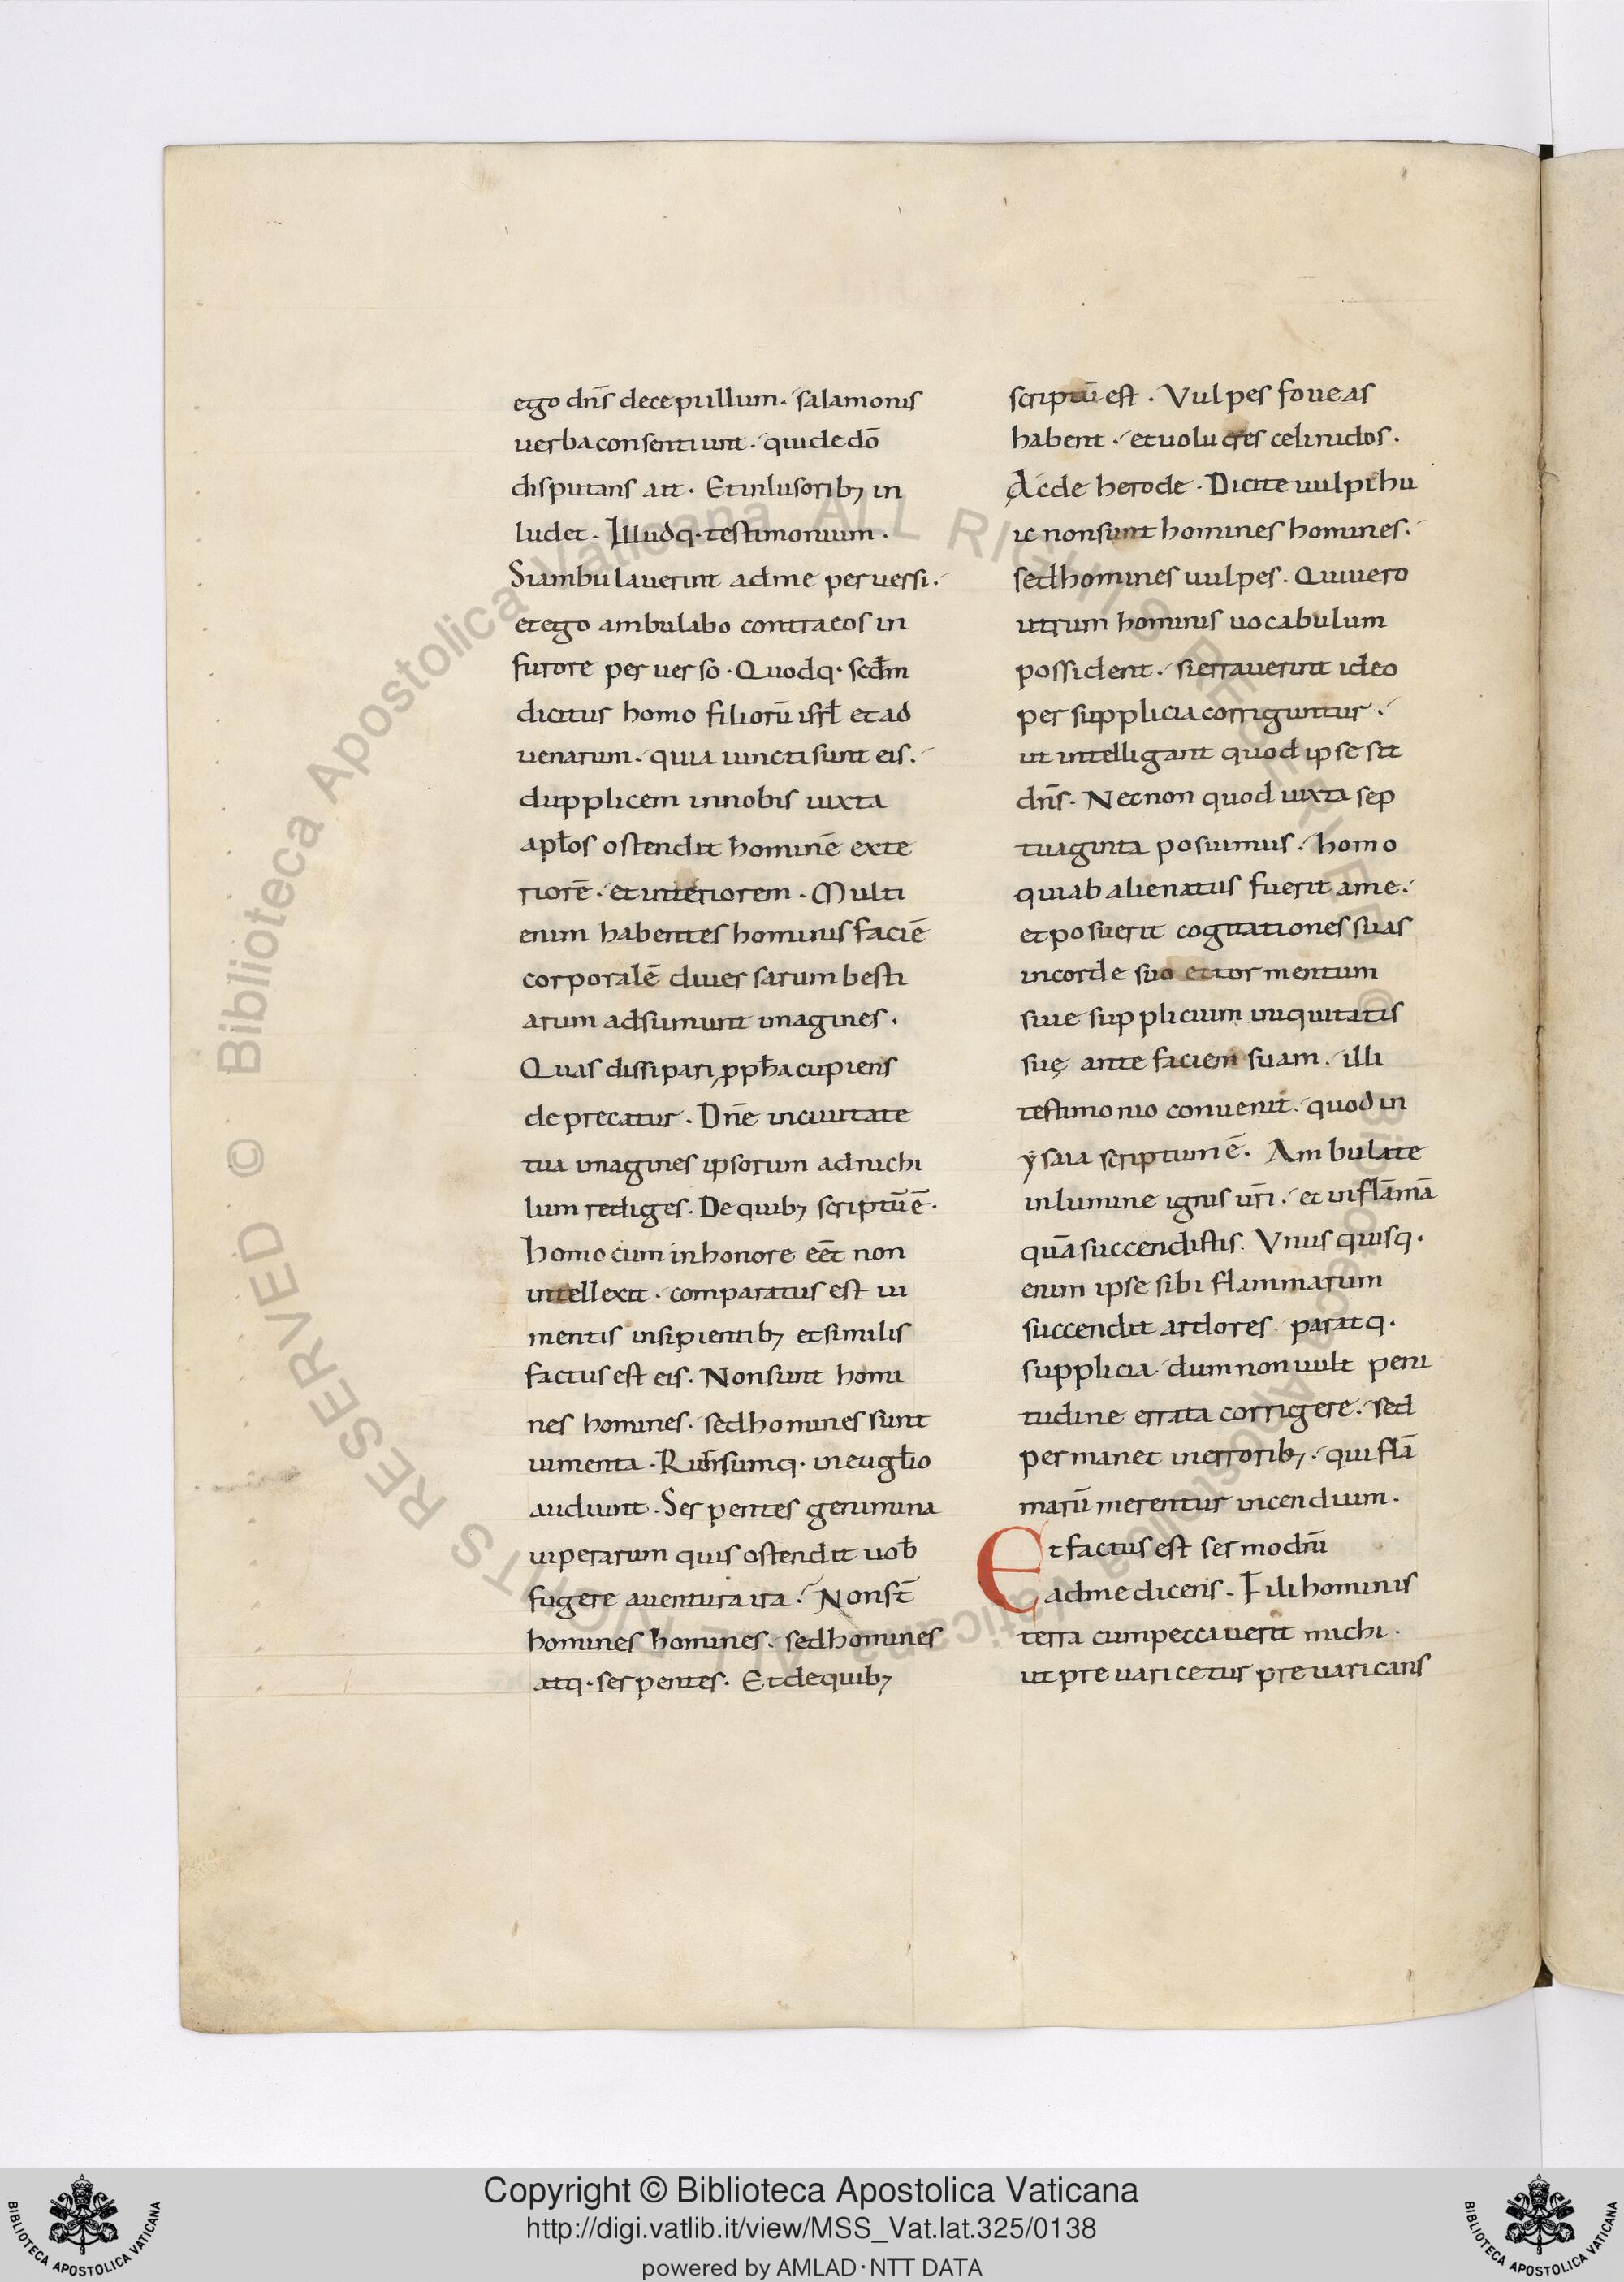 ego dn̄s decepi illum. salamonis
uerba consentiunt. qui de dō
disputans ait. Et inlusorib; in
ludet. Illudq. testimonium.
Si ambulauerint ad me peruersi.
et ego ambulabo contra eos in
furore peruerso. Quodq. scdm̄
dicitur homo filiorū isrł et ad
uenarum. quia iuncti sunt eis.
dupplicem in nobis iuxta
apłos ostendit hominē exte
riorē. et interiorem. Multi
enim habentes hominis faciē
corporalē diuersarum besti
arum adsumunt imagines.
Quas dissipari ꝓpħa cupiens
deprecatur. Dn̄e in ciuitate
tua imagines ipsorum ad nichi
lum rediges. De quib; scriptū ē.
homo cum in honore eēt non
intellexit. comparatus est iu
mentis insipientib; et similis
factus est eis. Non sunt homi
nes homines. sed homines sunt
iumenta. Rursumq. in eugłio
audiunt. Serpentes genimina
uiperarum quis ostendit uob̄
fugere a uentura ira. Non st̄
homines homines. sed homines
atq. serpentes. Et de quib;
scriptū est. Vulpes foueas
habent. et uolucres celi nidos.
Ac de herode. Dicite uulpi hu
ic non sunt homines homines.
sed homines uulpes. Qui uero
utrum hominis uocabulum
possident. si errauerint ideo
per supplicia corriguntur.
ut intelligant quod ipse sit
dn̄s. Necnon quod iuxta sep
tuaginta posuimus. homo
qui abalienatus fuerit a me.
et posuerit cogitationes suas
in corde suo et tormentum
siue supplicium iniquitatis
suę ante faciem suam. illi
testimonio conuenit. quod in
ysaia scriptum ē. Ambulate
in lumine ignis ur̄i. et in flāmā
quā succendistis. Vnus quisq.
enim ipse sibi flammarum
succendit ardores. paratq.
supplicia. dum non uult peni
tudine errata corrigere. sed
permanet in errorib;. qui flā
marū merentur incendium.
Et factus est sermo dn̄i
ad me dicens. Fili hominis
terra cum peccauerit michi.
ut preuaricetur preuaricans
Copyright © Biblioteca Apostolica Vaticana
http://digi.vatlib.it/view/MSS_Vat.lat.325/0138
powered by AMLAD·NTT DATA
BIBLIOTECA APOSTOLICA VATICANA
BIBLIOTECA APOSTOLICA VATICANA
© Biblioteca Apostolica Vaticana ALL RIGHTS RESERVED
© Biblioteca Apostolica Vaticana ALL RIGHTS RESERVED